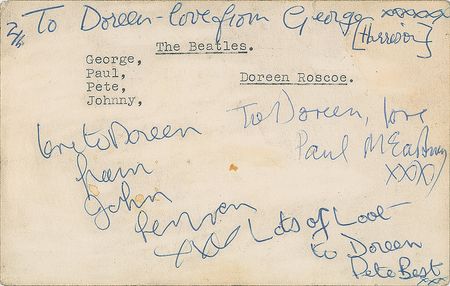 To Doreen - love from George xxxxx
[Harrison]
The Beatles.
George,
Paul,
Pete,
Johnny,
Doreen Roscoe.
To Doreen, love
Paul McCartney
xxx
love to Doreen
from
John
Lennon
xxx
Lots of Love
to Doreen
Pete Best
xxx